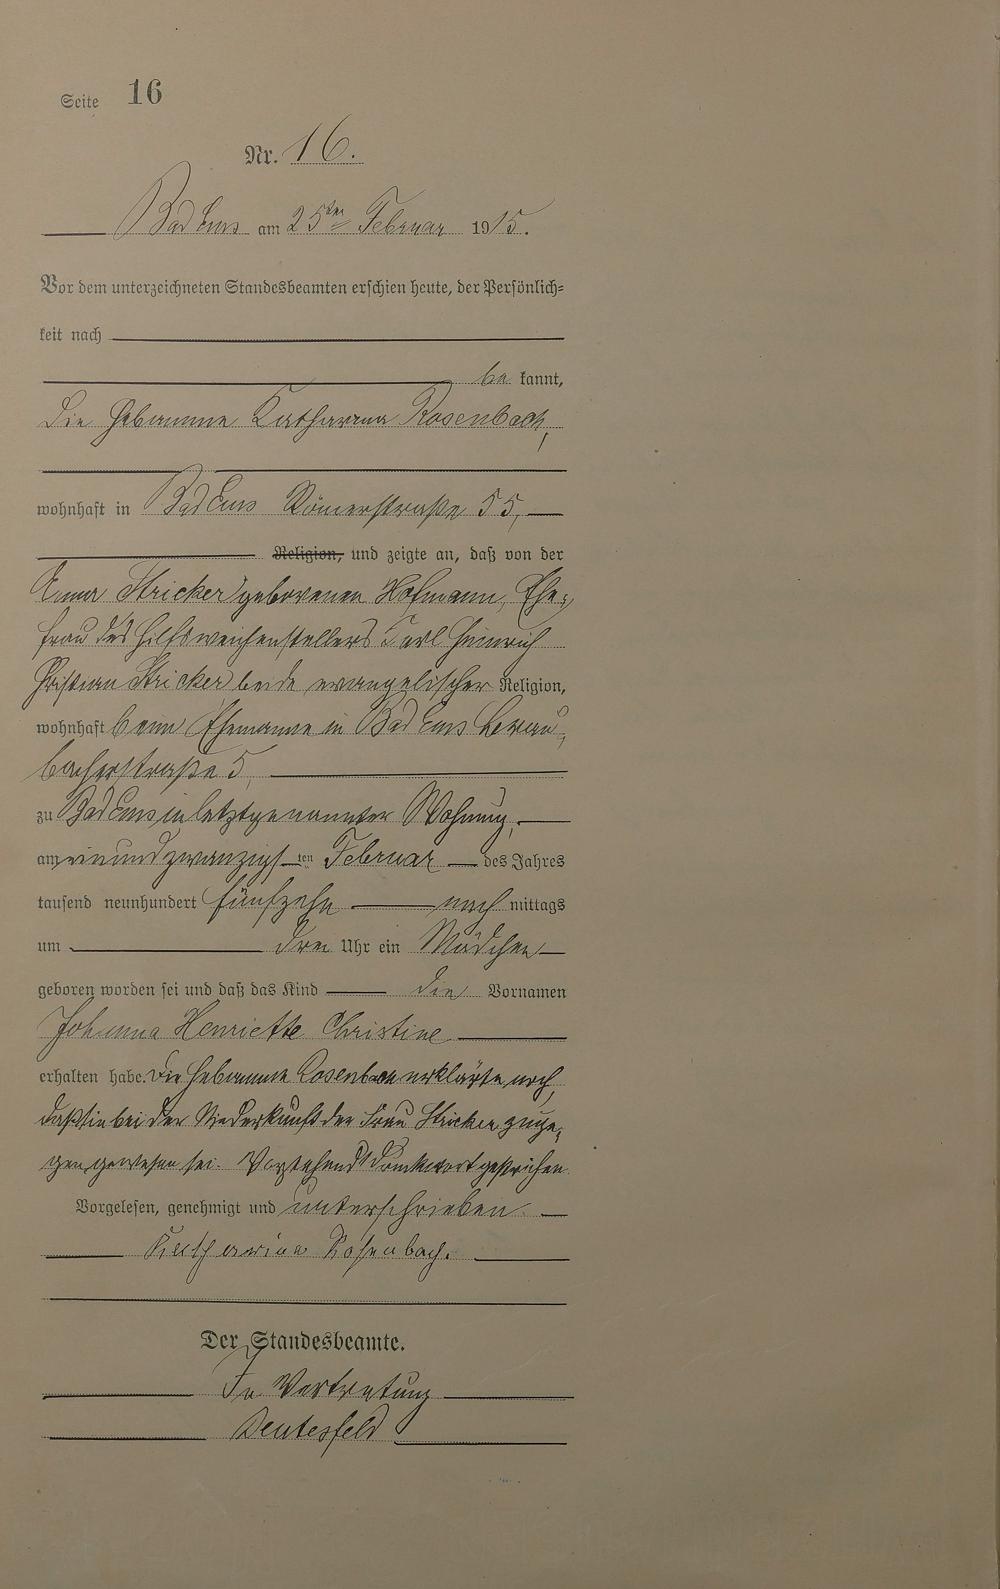 Seite 16
Nr. 16.
Bad Ems am 25ten Februar 1915.
Vor dem unterzeichneten Standesbeamten erschien heute, der Persönlich=
keit nach
be kannt,
die Hebamme Katharina Rosenbach,
wohnhaft in Bad Ems Römerstraße 55,
Religion, und zeigte an, daß von der
Anna Stricker geborenen Hofmann, Ehe=
frau des Hilfsweichenstellers Karl Heinrich
Christian Stricker beide evangelischer Religion,
wohnhaft beim Ehemanne in Bad Ems Brau=
bacherstraße 5,
zu Bad Ems in letztgenannter Wohnung,
am einundzwanzigsten Februar des Jahres
tausend neunhundert fünfzehn nach mittags
um drei Uhr ein Mädchen
geboren worden sei und daß das Kind die Vornamen
Johanna Henriette Christine
erhalten habe. Die Hebamme Rosenbach erklärte noch,
daß sie bei der Niederkunft der Frau Stricker zuge=
gen gewesen sei. Vorstehend 1 Druckwort gestrichen.
Vorgelesen, genehmigt und unterschrieben
Katharina Rosenbach.
Der Standesbeamte.
In Vertretung
Deutesfeld